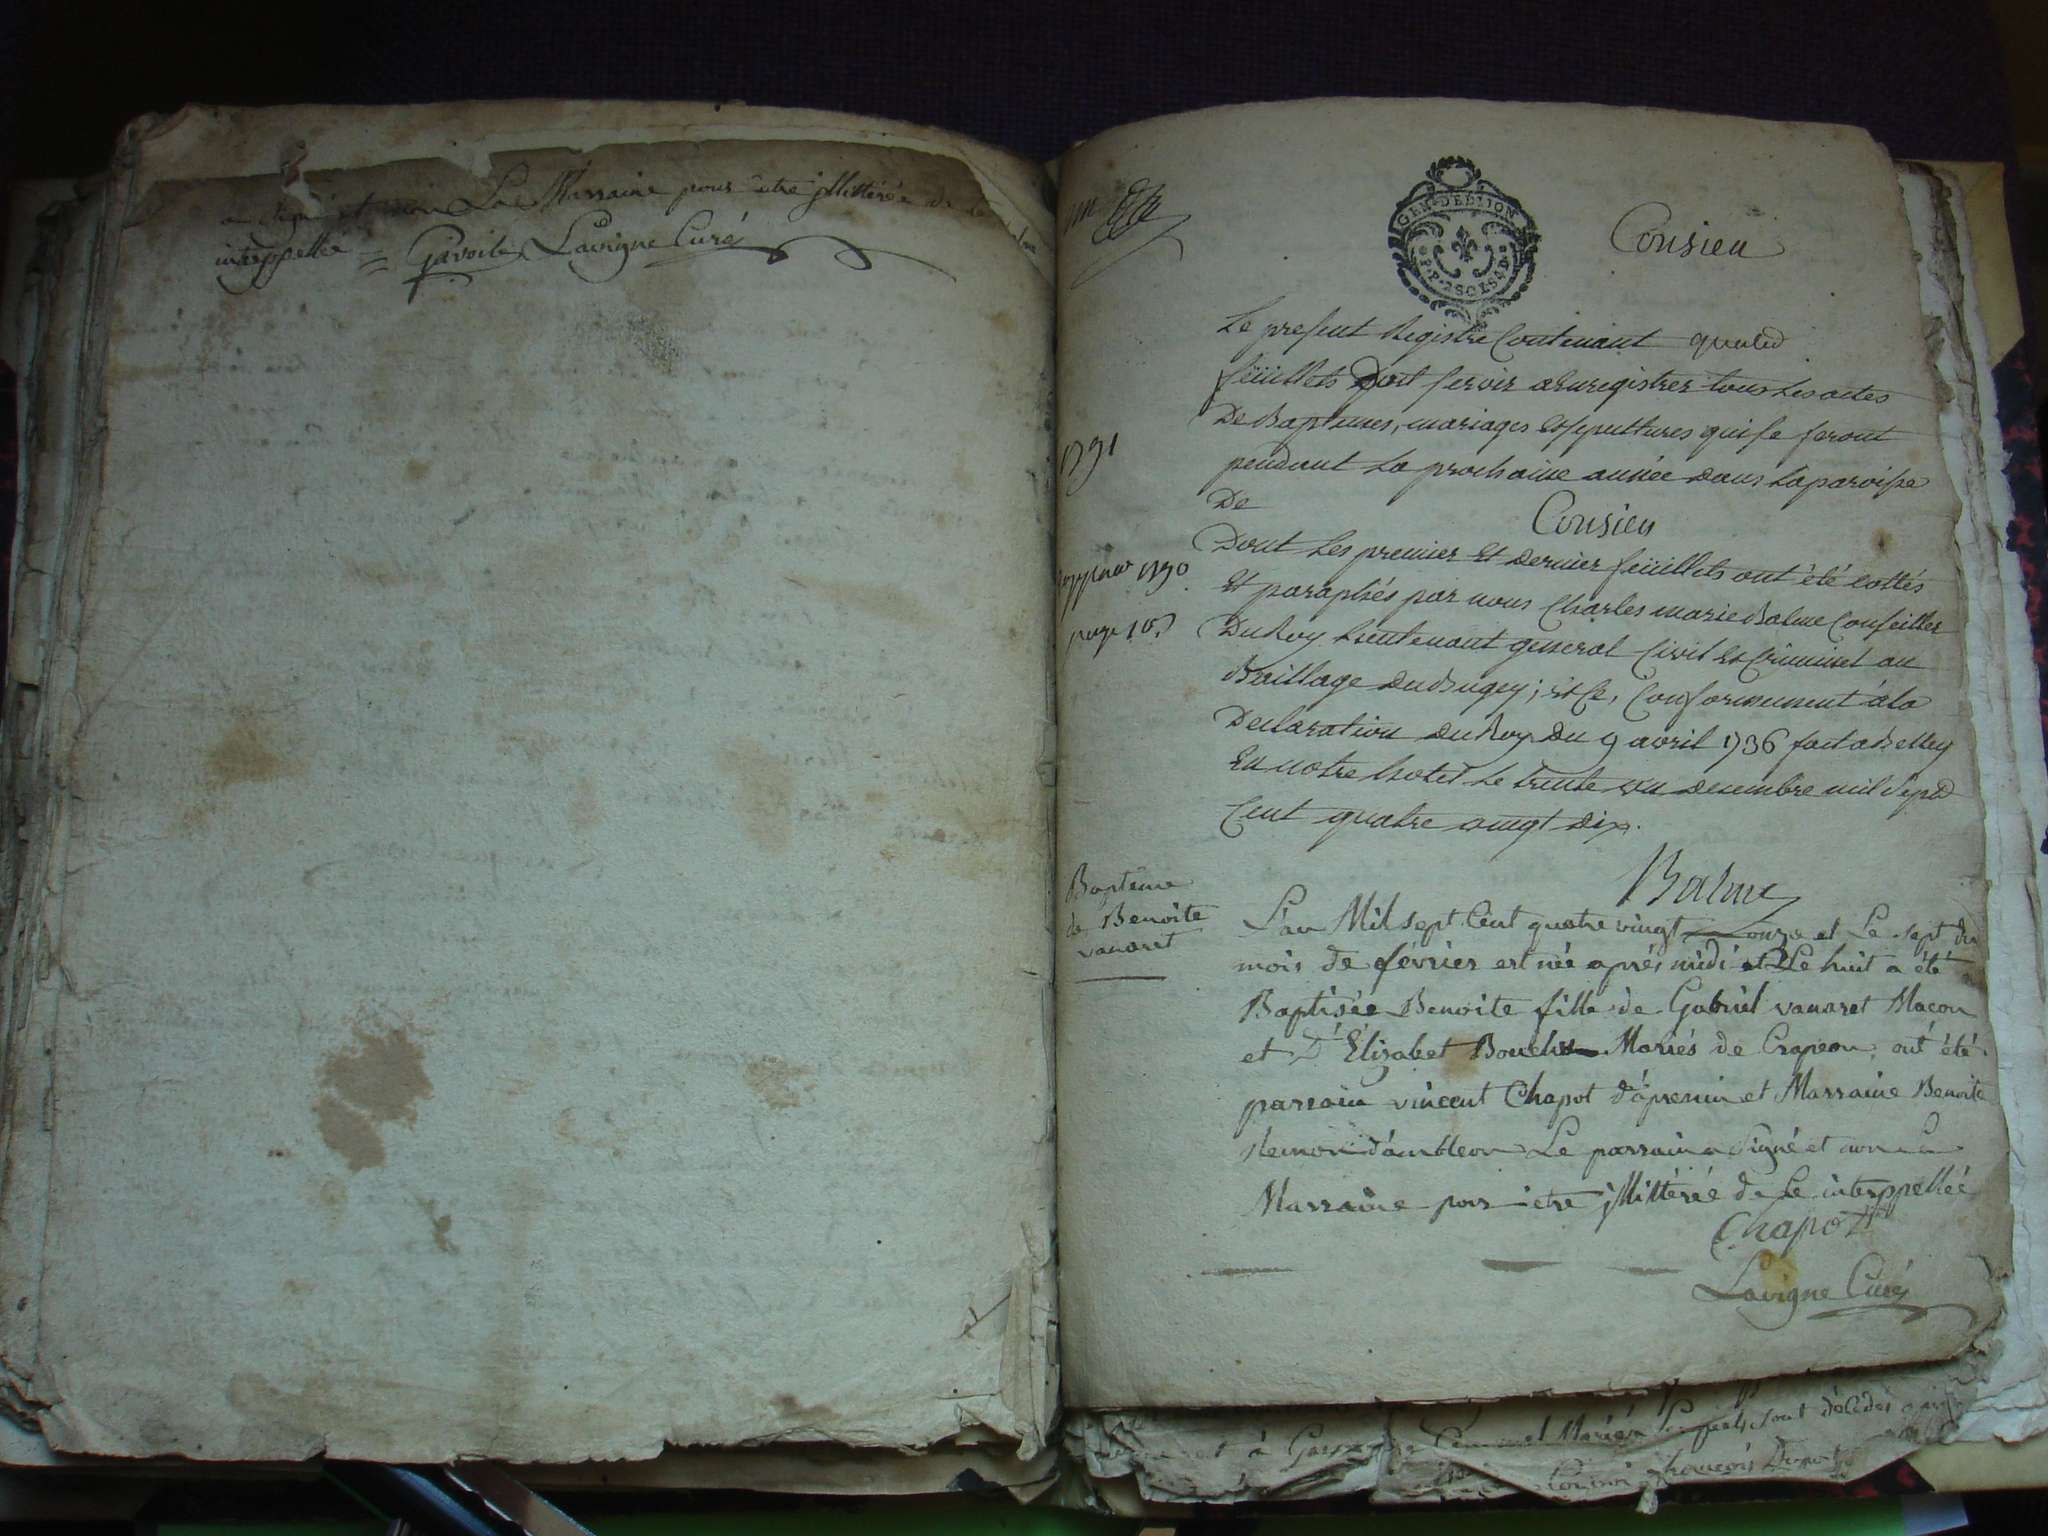 a signé et non La Marraine pour être jllittérée de le
interppellée = Gavoile Lavigne Curé
GEN DE DIJON
P.P. 2 SOLS 4 D
Consieu
Le present Registre Contenant quatre
feüillets doit servir a Enregistrer tous Les actes
De Baptemes, mariages et sepultures qui se feront
pendant La prochaine année dans La paroisse
De
Consieu
Dont Les premier Et dernier feüillets ont été cottés
Et paraphés par nous Charles marie Balme Conseiller
Du Roy Lieutenant general Civil et Criminel au
Baillage du Bugey; et ce, Conformement à la
Declaration du Roy du 9 avril 1736 fait a Belley
En notre hotel Le trente un decembre mil sept
Cent quatre vingt dix.
Balme
1791
1790
page 10
Baptême
de Benoite
vanaret
L'an Mil sept Cent quatre vingt onze et Le sept du
mois de février est née aprés midi et Le huit a été
Baptisée Benoite fille de Gabriel vanaret Maçon
et D'Élizabet Mariés de Crapeou, ont été
parrain vincent Chapot d'apremin et Marraine Benoite
d'ambleon Le parrain a Signé et non La
Marraine pour être jllittérée de Le interppellée
Chapot
Lavigne Curé
à sont décédés
françois